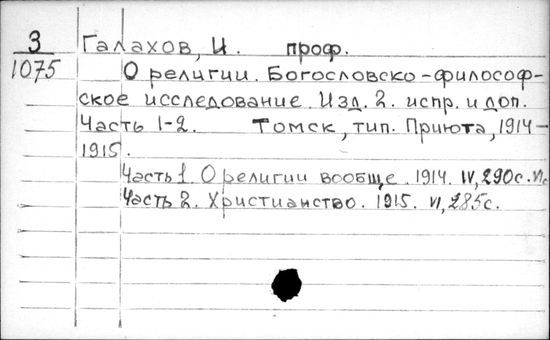 3 Галахов, И. проф.
1075 О религии. Богословско-философ-
ское исследование. Изд. 2. испр. и доп.
Часть 1-2. Томск, тип. Приюта, 1914-
1915.
Часть 1. О религии вообще. 1914. IV, 290с. VIс
Часть 2. Христианство. 1915. VI, 285с.